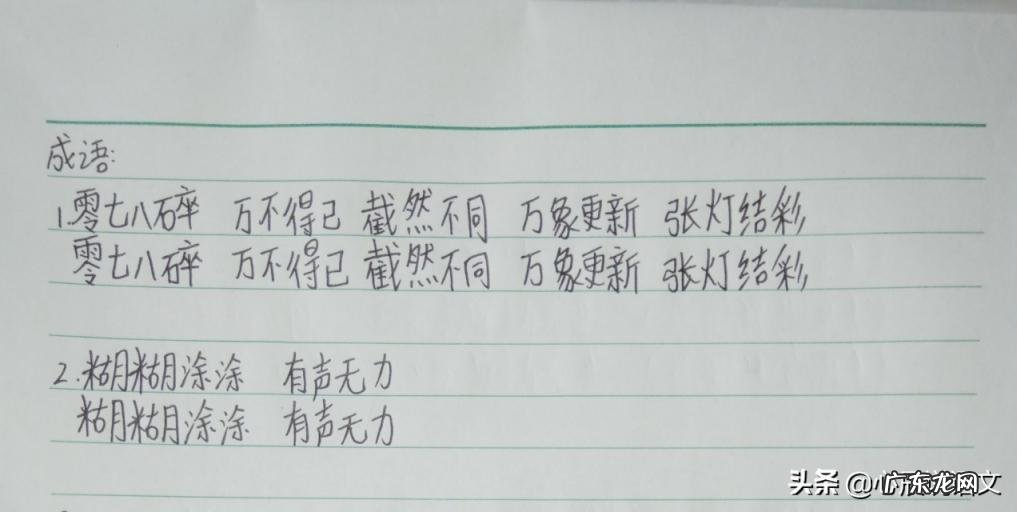 成语:
1.零七八碎 万不得已 截然不同 万象更新 张灯结彩
零七八碎 万不得已 截然不同 万象更新 张灯结彩
2.糊糊涂涂 有声无力
糊糊涂涂 有声无力
头条 @
广东龙网文